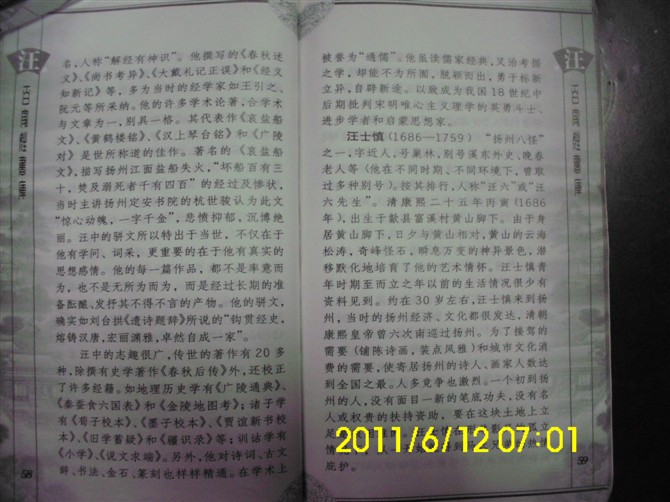 汪
名,人称“解经有神识”。他撰写的《春秋述
义》、《尚书考异》、《大戴礼记正误》和《经义
知新记》等,多为当时的经学家如王引之、
阮元等所采纳。他的许多学术论著,合学术
与文章为一,别具一格。其代表作《哀盐船
文》、《黄鹤楼铭》、《汉上琴台铭》和《广陵
对》是世所称道的佳作。著名的《哀盐船
文》,描写扬州江面盐船失火,“坏船百有三
十,焚及溺死者千有四百”的经过及惨状,
当时主讲扬州定安书院的杭世骏认为此文
“惊心动魄,一字千金”,悲愤抑郁,沉博绝
丽。汪中的骈文所以特出于当世,不仅在于
他有学问、词采,更重要的在于他有真实的
思想感情。他的每一篇作品,都不是率意而
为,也不是无所为而为,而是经过长期的准
备酝酿、发抒其不得不言的产物。他的骈文,
确实如刘台拱《遗诗题辞》所说的“钩贯经史,
熔铸汉唐,宏丽渊雅,卓然自成一家”。
汪中的志趣很广,传世的著作有20多
种,除撰有史学著作《春秋后传》外,还校正
了许多经籍。如地理历史学有《广陵通典》、
《秦蚕食六国表》和《金陵地图考》;诸子学
有《荀子校本》、《墨子校本》、《贾谊新书校
本》、《旧学蓄疑》和《疆识录》等;训诂学有
《小学》、《说文求端》。另外,他对诗词、古文
辞、书法、金石、篆刻也样样精通。在学术上
58
汪
被誉为“通儒”。他虽读儒家经典,又治考据
之学,却能不为所囿,脱颖而出,勇于标新
立异,自辟新途。以致成为我国18世纪中
后期批判宋明唯心主义理学的英勇斗士、
进步学者和启蒙思想家。
汪士慎(1686—1759) “扬州八怪”
之一,字近人,号巢林,别号溪东外史、晚春
老人等(他在不同时期、不同环境下,曾取
过多种别号)。按其排行,人称“汪六”或“汪
六先生”。清康熙二十五年丙寅(1686
年),出生于歙县富溪村黄山脚下。由于身
居黄山脚下,日夕与黄山相对,黄山的云海
松涛,奇峰怪石,瞬息万变的神异景色,潜
移默化地培育了他的艺术情怀。汪士慎青
年时期至而立之年以前的生活情况很少有
资料见到。约在30岁左右,汪士慎来到扬
州,当时的扬州经济、文化都很发达,清朝
康熙皇帝曾六次南巡过扬州。为了接驾的
需要(铺陈诗画,装点风雅)和城市文化消
费的需要,使寄居扬州的诗人、画家人数达
到全国之最。人多竞争也激烈。一个初到扬
州的人,没有面目一新的笔底功夫,没有名
人或权贵的扶持资助,要在这块土地上立
足
情
庇护。
59
2011/6/12 07:01